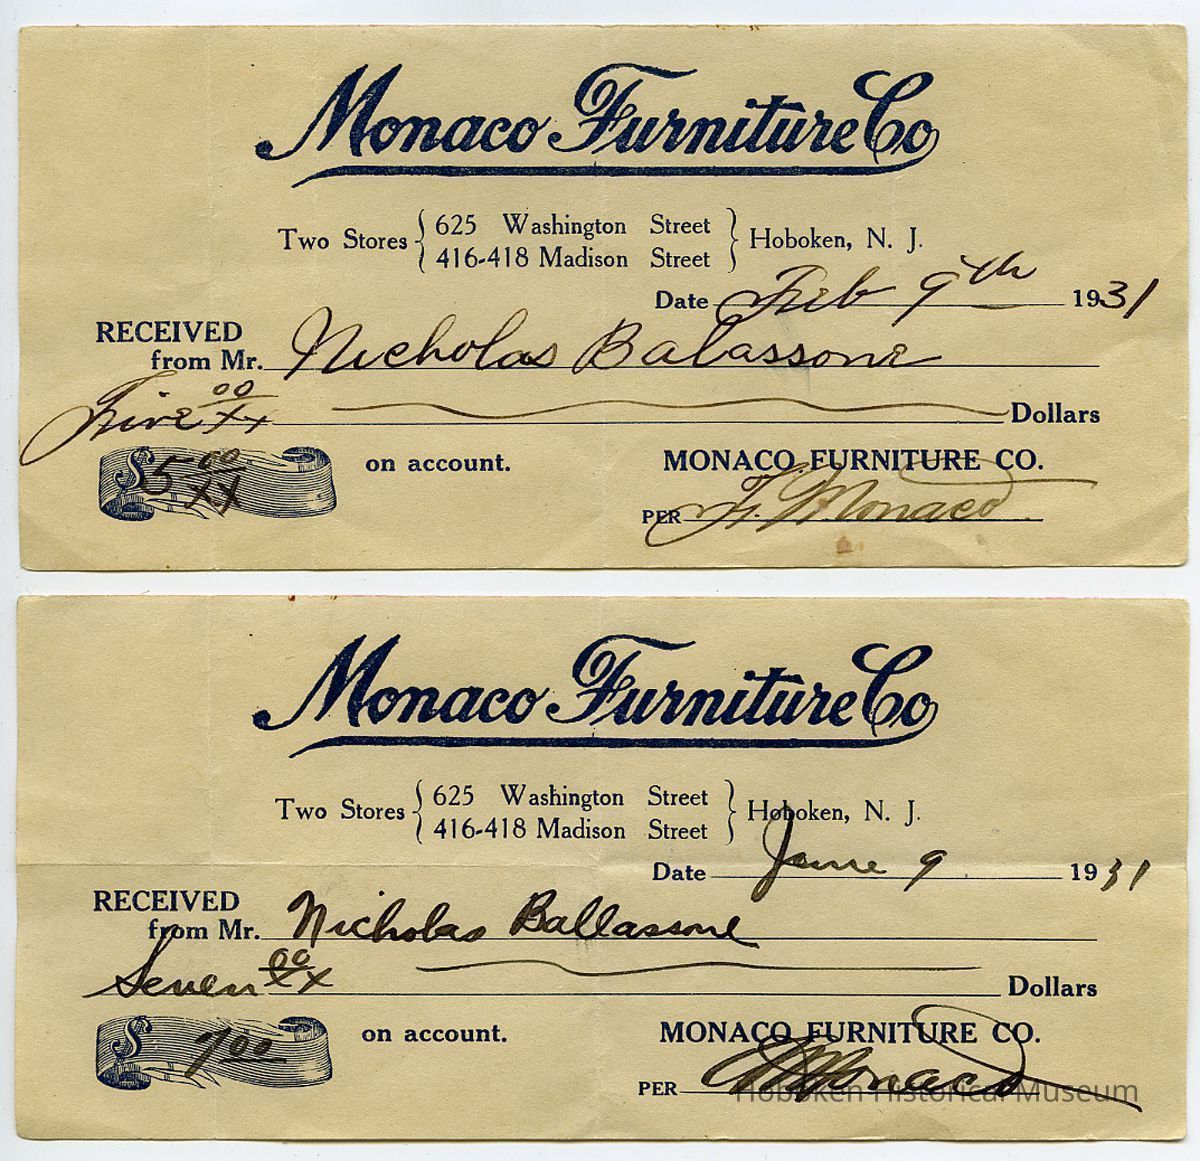 Monaco Furniture Co
Two Stores { 625 Washington Street } Hoboken, N. J.
416-418 Madison Street
Date Feb 9th 1931
RECEIVED
from Mr. Nicholas Balassone
Five 00/xx Dollars
$5 00/xx on account. MONACO FURNITURE CO.
PER F. Monaco
Monaco Furniture Co
Two Stores { 625 Washington Street } Hoboken, N. J.
416-418 Madison Street
Date June 9 1931
RECEIVED
from Mr. Nicholas Ballassone
Seven 00/xx Dollars
$ 7 00 on account. MONACO FURNITURE CO.
PER Monaco
Hoboken Historical Museum